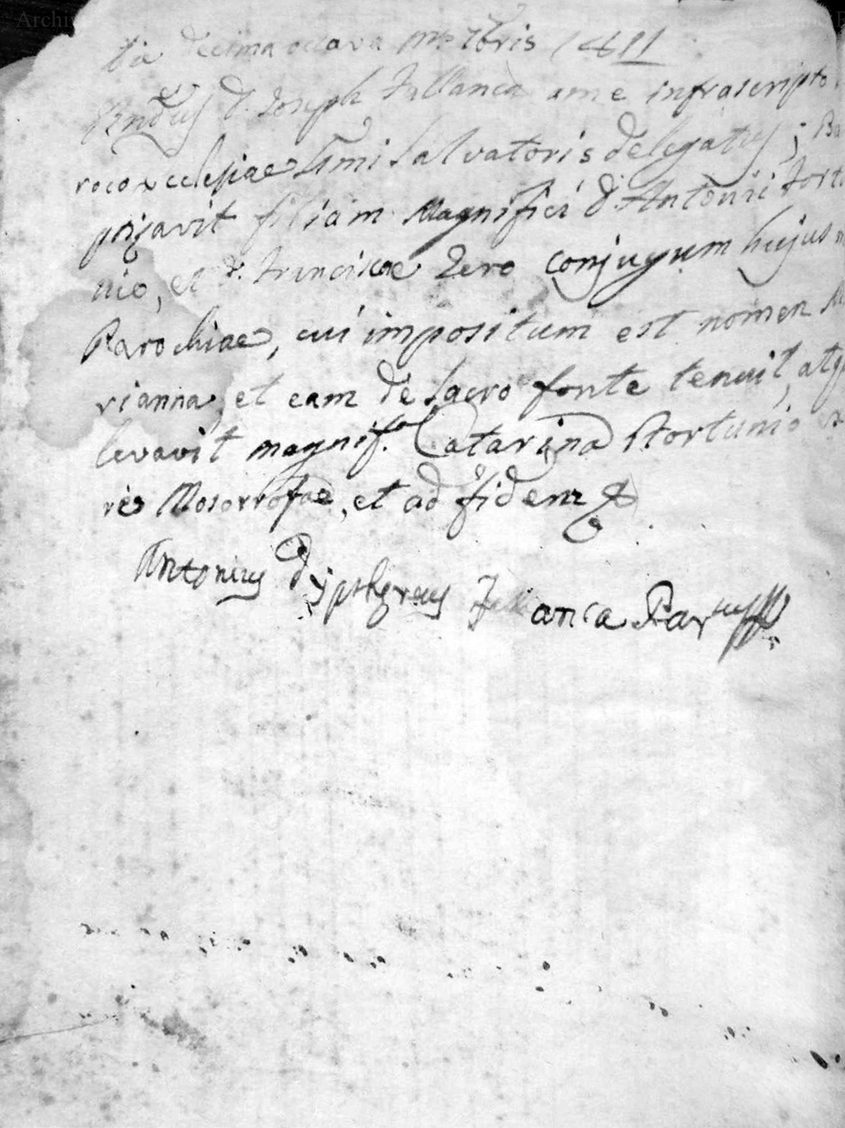 Die decima octava m. 7bris
Rndus D. Joseph Fallanca a me infrascripto
roco ecclesiae SSmi Salvatoris delegatus; Ba
ptizavit filiam Magnifici D. Antonii Fortu
nio, et D. Franciscae Zero conjugum hujus
Parochiae, cui impositum est nomen Ma
rianna, et eam de Sacro fonte tenuit, atq
levavit magnif.a Catarina Fortunio
Mosorrofae, et ad fidem
Antonius Fallanca Par